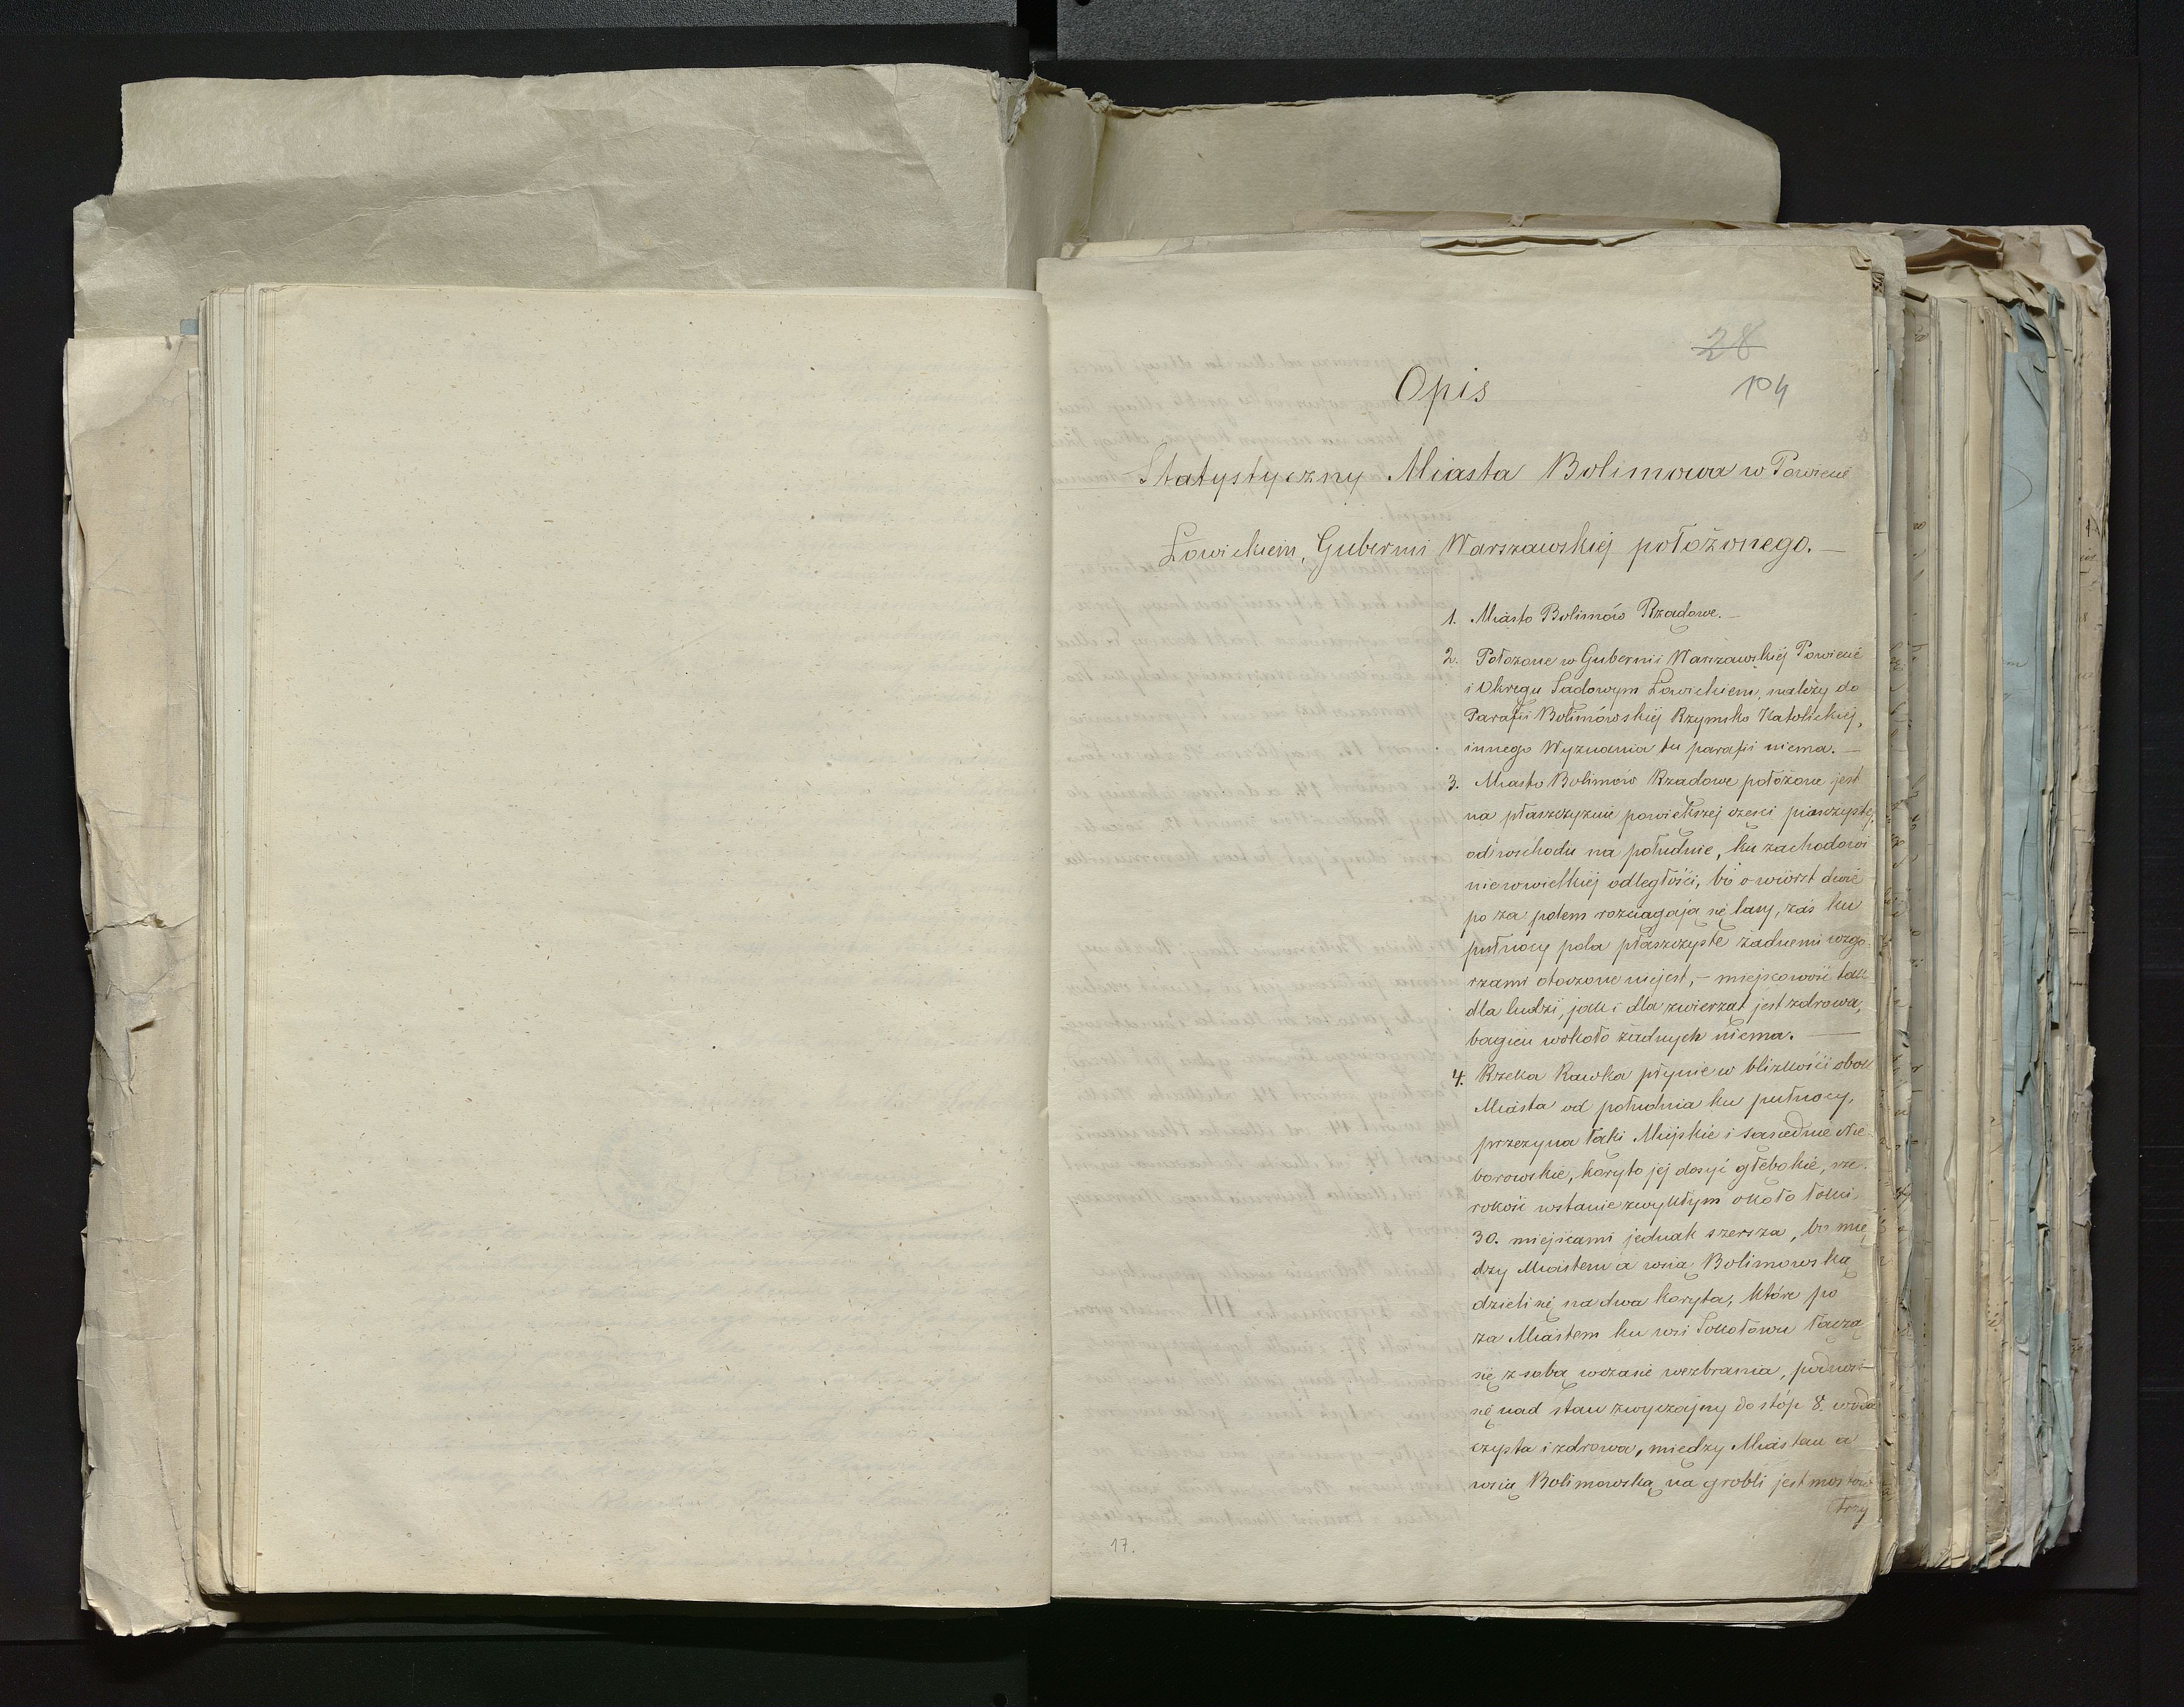 28
104
Opis
Statystyczny Miasta Bolimowa w Powiecie
Łowickiem, Gubernii Warszawskiej położonego. —
1. Miasto Bolimów Rządowe. —
2. Położone w Gubernii Warszawskiej Powiecie
i Okręgu Sądowym Łowickiem, należy do
Parafii Bolimówskiej Rzymsko Katolickiej,
innego Wyznania tu parafii niema. —
3. Miasto Bolimów Rządowe położone jest
na płaszczyznie powiększej części piaszczystej,
od wschodu na południe, ku zachodowi
niewwielkiej odległości, bo o wiorst dwie
po za polem rozciągają się lasy, zaś ku
pułnocy pola płaszczyste żadnemi wzgó-
rzami otoczone niejest, — miejscowość tak
dla ludzi, jak i dla zwierząt jest zdrowa,
bagien wokoło żadnych niema. —
4. Rzeka Rawka płynie w blizkości obok
Miasta od południa ku pułnocy,
przezyna łąki Miejskie i sąsiednie Nie-
borowskie, koryto jej dosyć głębokie, sze-
rokość wstanie zwykłym około łokci
30. miejscami jednak szersza, bo mię
dzy Miastem a wsią Bolimowską
dzieli się na dwa koryta, które po
za Miastem ku wsi Sokołowu łączą
się z sobą wczasie wezbrania, podnosi
się nad stan zwyczajny do stóp 8. woda
czysta i zdrowa, między Miastem a
wsią Bolimowską na grobli jest mostów
trzy
17.